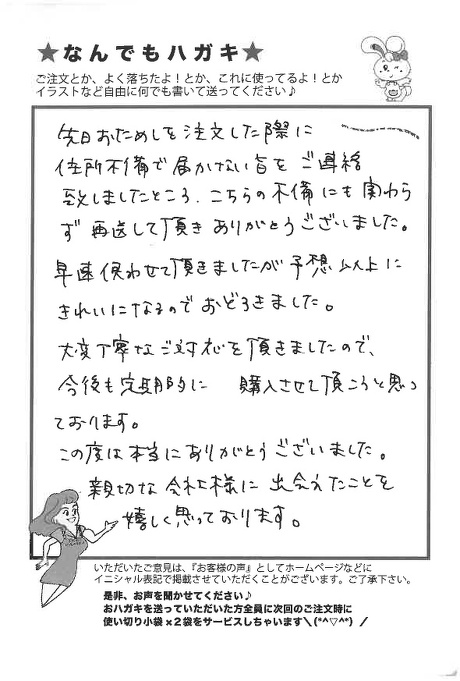 ★なんでもハガキ★
ご注文とか、よく落ちたよ！とか、これに使ってるよ！とか
イラストなど自由に何でも書いて送ってください♪
先日おためしを注文した際に
住所不備で届かない旨をご連絡
致しましたところ、こちらの不備にも関わら
ず再送して頂きありがとうございました。
早速使わせて頂きましたが予想以上に
きれいになるのでおどろきました。
大変丁寧なご対応を頂きましたので、
今後も定期的に 購入させて頂こうと思っ
ております。
この度は本当にありがとうございました。
親切な会社様に出会えたことを
嬉しく思っております。
いただいたご意見は、『お客様の声』としてホームページなどに
イニシャル表記で掲載させていただくことがございます。ご了承下さい。
是非、お声を聞かせてください♪
おハガキを送っていただいた方全員に次回のご注文時に
使い切り小袋×2袋をサービスしちゃいます＼(*^▽^*)／